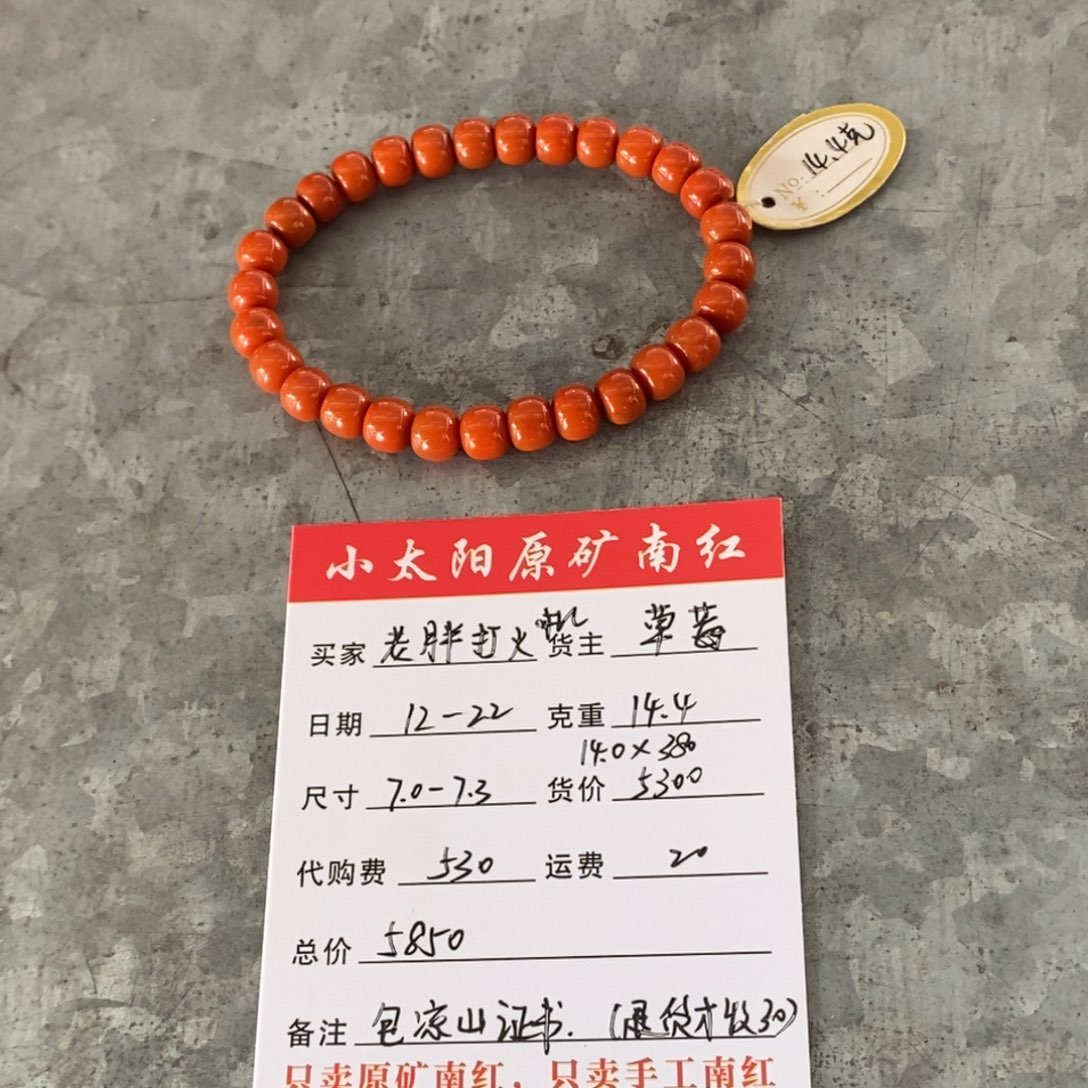 14.4克
No:
小太阳原矿南红
买家 老胖打火机 货主 草莓
日期 12-22 克重 14.4
14.0×380
尺寸 7.0-7.3 货价 5300
代购费 530 运费 20
总价 5850
备注 包凉山证书.(退货才收30)
只卖原矿南红,只卖手工南红